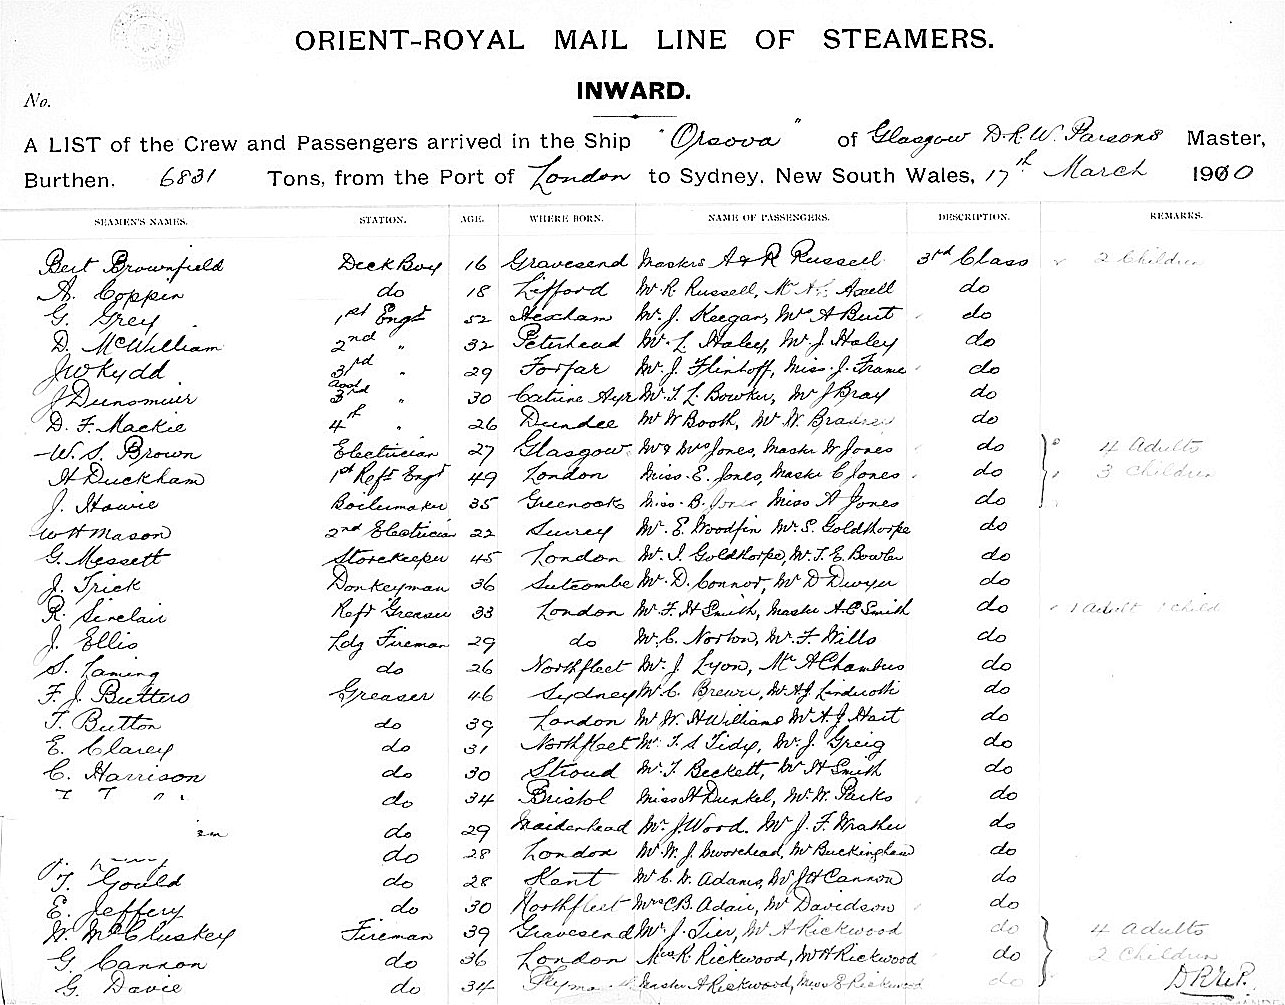 ORIENT-ROYAL MAIL LINE OF STEAMERS.
INWARD.
No.
A LIST of the Crew and Passengers arrived in the Ship "Orsova" of Glasgow D.R.W. Parsons Master,
Burthen. 6831 Tons, from the Port of London to Sydney, New South Wales, 17th March 1900
SEAMEN'S NAMES. STATION. AGE. WHERE BORN. NAME OF PASSENGERS. DESCRIPTION. REMARKS.
Bert Brownfield Deck Boy 16 Gravesend Masters A & R Russell 3rd Class 2 Children
A. Coppin do 18 Lifford Mr R. Russell, Axell do
G. Grey 1st Engr 52 Hexham Mr. J. Keegan, Mr A Burt do
D. McWilliam 2nd " 32 Peterhead Mr. L. Haley, Mr J Haley do
J W Kydd 3rd " 29 Forfar Mr. J. Flintoff, Miss J. Frame do
J Dunsmuir Addl 3rd " 30 Catrine Ayr Mr. T. L. Bowker, Mr J Bray do
D. F. Mackie 4th " 26 Dundee Mr W Booth, Mr W. do
W. S. Brown Electrician 27 Glasgow Mr & Mrs Jones, Master W Jones do 4 Adults
H Duckham 1st Refr Engr 49 London Miss E. Jones, Master C Jones do 3 Children
J. Howie Boilermaker 35 Greenock Miss B. Jones Miss A Jones do
W H Mason 2nd Electrician 22 Surrey Mr. E. Woodfin Mr. S. Goldthorpe do
G. Messett Storekeeper 45 London Mr. I. Goldthorpe, Mr. T. E. Bowler do
J. Trick Donkeyman 36 Sutcombe Mr. D. Connor, Mr D Dwyer do
R. Sinclair Refr Greaser 33 London Mr. F. H Smith, Master A. E Smith do 1 adult 1 child
J. Ellis Ldg Fireman 29 do Mr. C. Norton, Mr. F. Wills do
S. Laming do 26 Northfleet Mr. J. Lyon, Mr A Chambers do
F. J. Butters Greaser 46 Sydney Mr C. Brewer, Mr A J do
T. Button do 39 London Mr W. H Williams Mr. A. J Hart do
E. Clarey do 31 Northfleet Mr. T. S Tidy, Mr. J. Greig do
C. Harrison do 30 Stroud Mr. T. Beckett, Mr H Smith do
do 34 Bristol Miss H Dunkel, Mr. W. Parks do
do 29 Maidenhead Mr. J. Wood. Mr J. F. Mather do
do 28 London Mr. W. J. Moorehead, Mr Buckingham do
T. Gould do 28 Kent Mr C. W. Adams, Mr J H Cannon do
E. Jeffery do 30 Northfleet Mrs C B. Adair, Mr Davidson do
W. McCluskey Fireman 39 Gravesend Mr. J. Tier, Mr A Rickwood do 4 adults
G. Cannon do 36 London Mrs R. Rickwood, Mr H Rickwood do 2 Children
G. Davie do 34 Master A Rickwood, Miss E Rickwood do